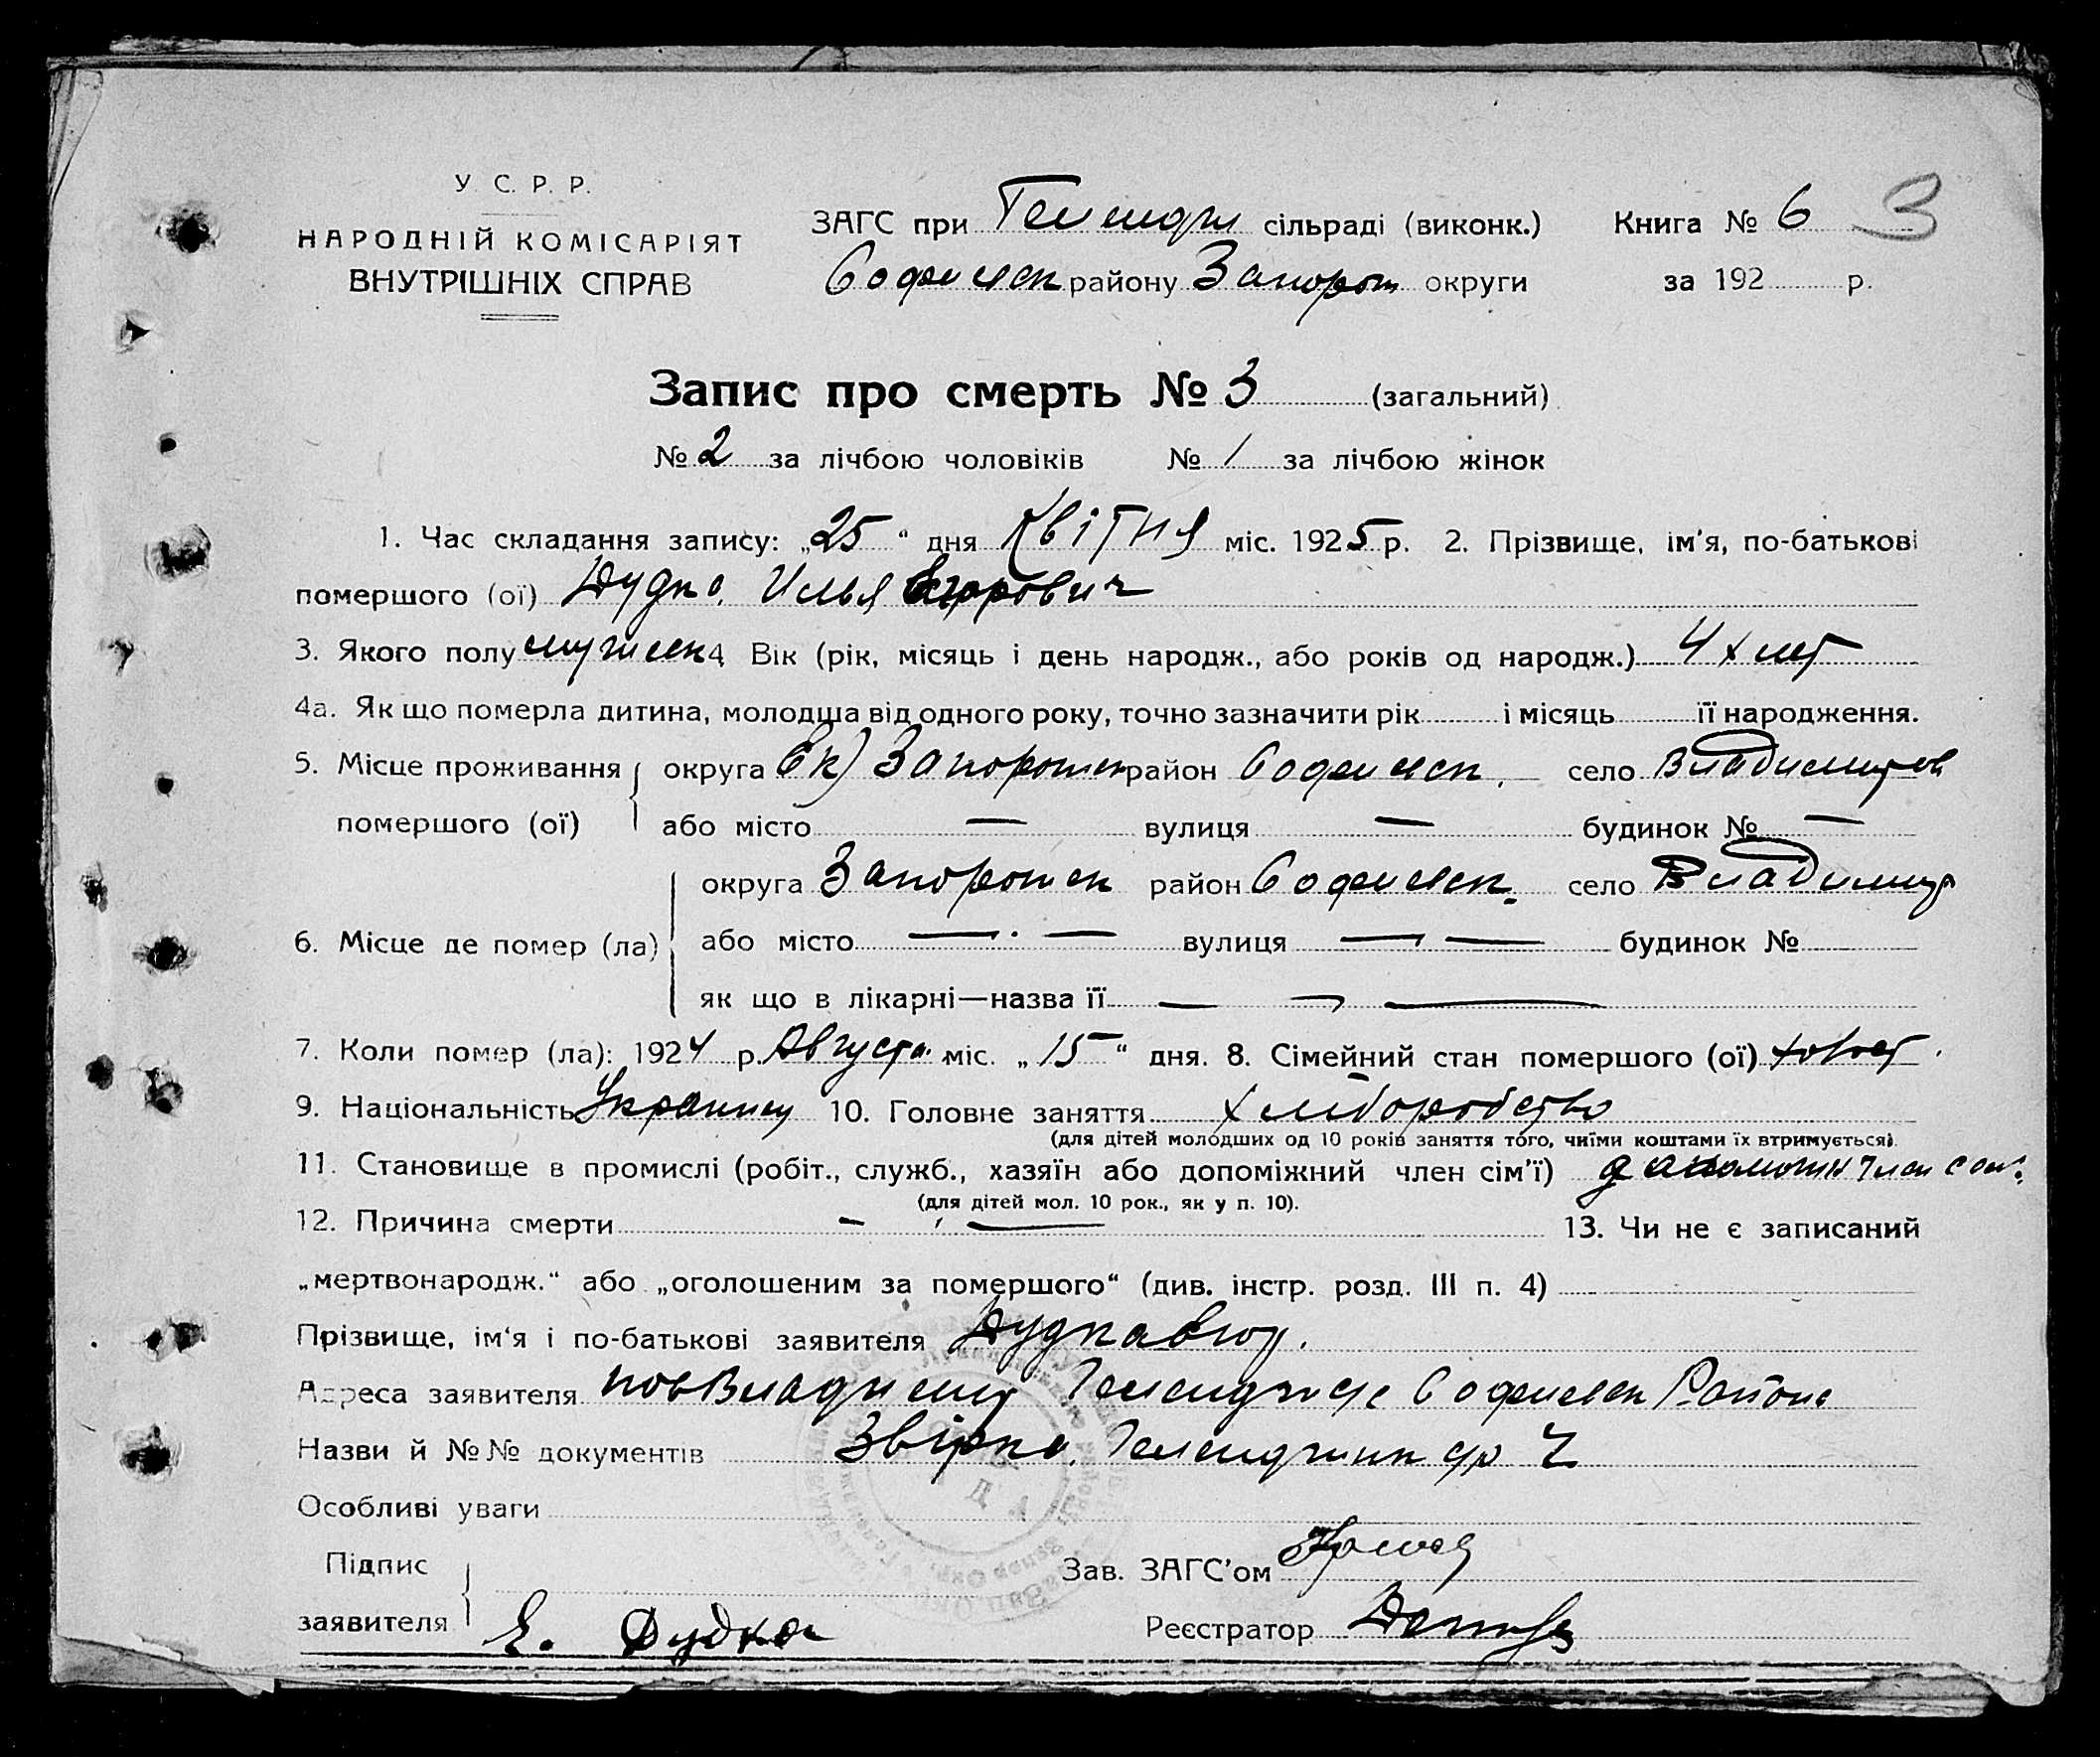 У. С. Р. Р.
НАРОДНІЙ КОМІСАРІЯТ
ВНУТРІШНІХ СПРАВ
ЗАГС при сільраді (виконк.) Книга № 6 3
Софиевск району Запорож округи за 192 р.
Запис про смерть № 3 (загальний)
№ 2 за лічбою чоловіків № 1 за лічбою жінок
1. Час складання запису: „25" дня Квітня міс. 1925 р. 2. Прізвище, ім'я, по-батькові
помершого (ої) Дудка Илья Егорович
3. Якого полу мужеск 4. Вік (рік, місяць і день народж., або років од народж.) 4х лет
4а. Як що померла дитина, молодша від одного року, точно зазначити рік і місяць її народження.
5. Місце проживання округа Ек) Запорожск район Софиевск. село Владимиров
помершого (ої) або місто — вулиця — будинок № —
округа Запорожск район Софиевск. село Владимир
6. Місце де помер (ла) або місто — · — вулиця — — будинок №
як що в лікарні—назва її — —
7. Коли помер (ла): 1924 р. Августа міс. „15" дня. 8. Сімейний стан помершого (ої) холост.
9. Національність Украинец 10. Головне заняття Хліборобство
(для дітей молодших од 10 років заняття того, чиїми коштами їх втримується).
11. Становище в промислі (робіт., служб., хазяїн або допоміжний член сім'ї) член сем.
(для дітей мол. 10 рок., як у п. 10).
12. Причина смерти — — 13. Чи не є записаний
„мертвонародж." або „оголошеним за помершого" (див. інстр. розд. III п. 4)
Прізвище, ім'я і по-батькові заявителя Дудка
Адреса заявителя Софиевск Района
Назви й №№ документів Звірка
Особливі уваги
Підпис
Зав. ЗАГС'ом
заявителя Е. Дудка Реєстратор